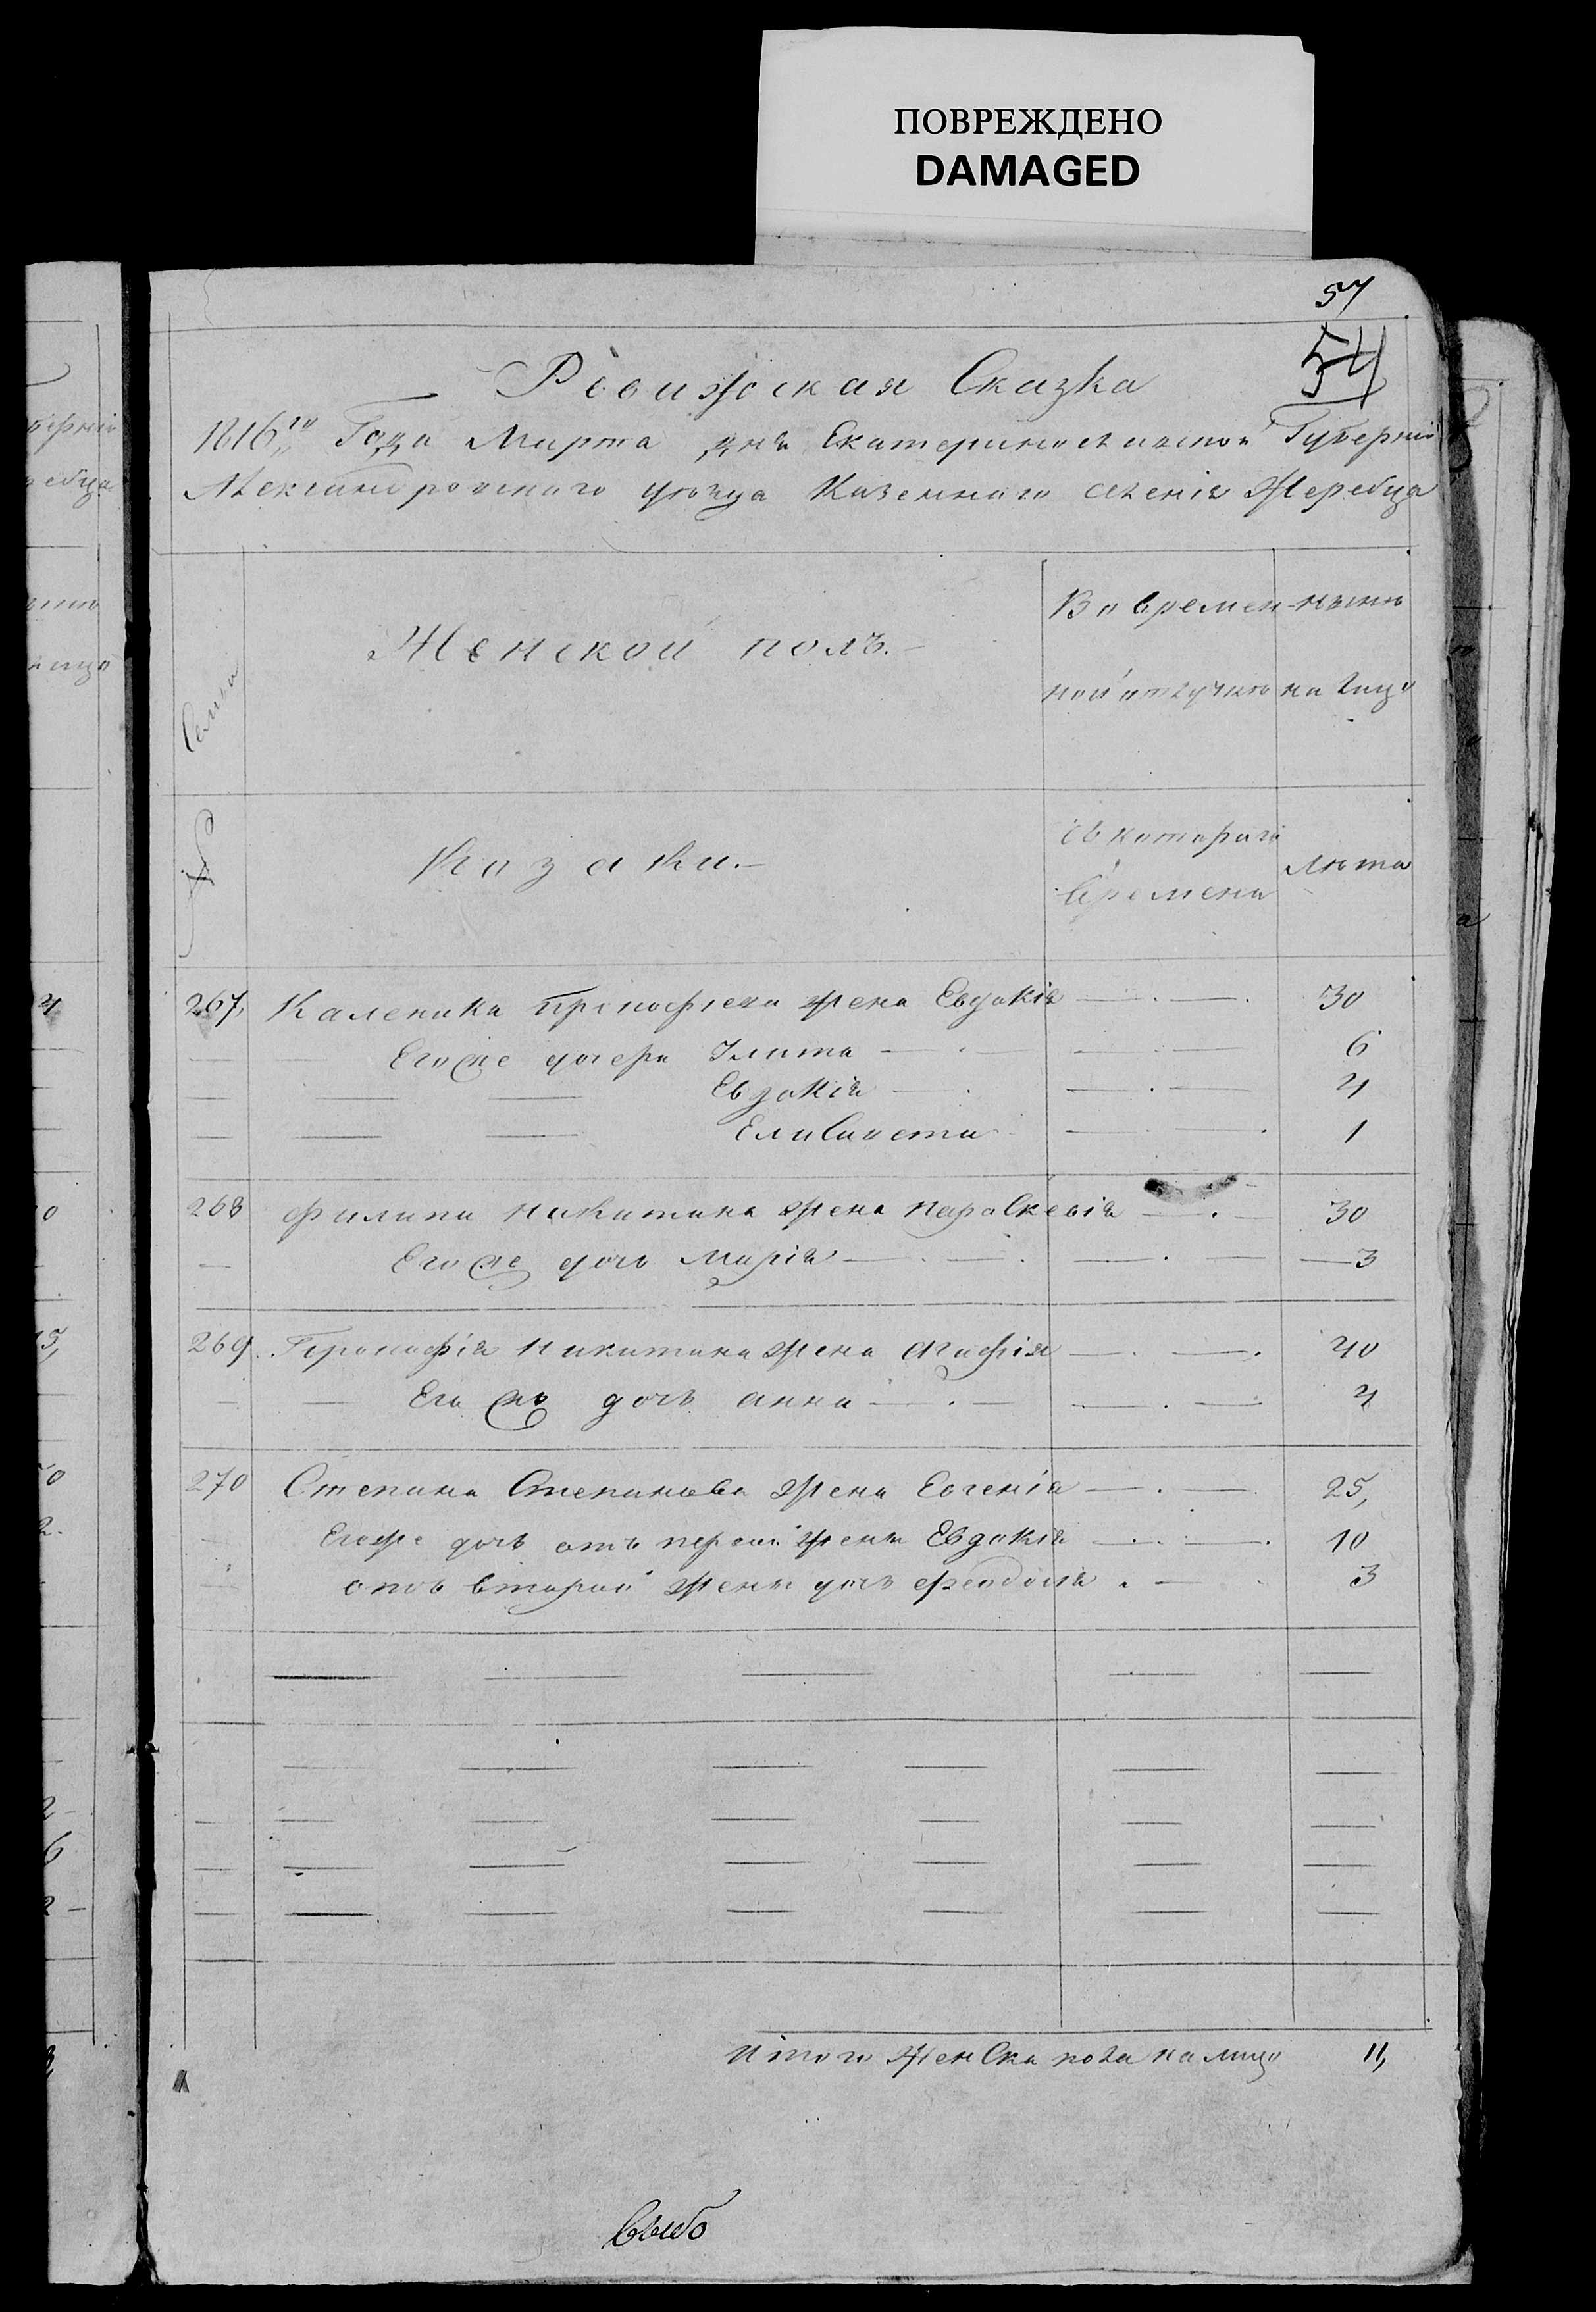 ПОВРЕЖДЕНО
DAMAGED
57
54
Ревижская Сказка
1816го Года Марта дня Екатеринославской Губернии
Александровского уезда Казенного селения Жеребца
Семьи
Женской полъ.
Во времен-
ной отлучке
ныне
на лицо
№
Козаки.
съ которого
времени
лета
267, Каленика Прокофиева жена Евдокiя 30
Егоже дочери Улита 6
Евдокiя 4
Елисавета 1
268 Филипа Никитина жена Параскевiя 30
Егоже дочь Марiя 3
269. Прокофiя Никитина жена Агафiя 40
Его же дочь Анна 4
270 Степана Степанова жена Евгенiя 25,
Егоже дочь отъ первой жены Евдокiя 10
отъ второй жены дочь Феодосiя 3
Итого женска пола на лицо 11,